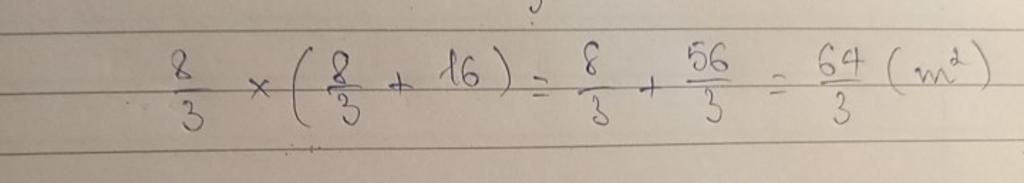 8/3 × (8/3 + 16) = 8/3 + 56/3 = 64/3 (m²)